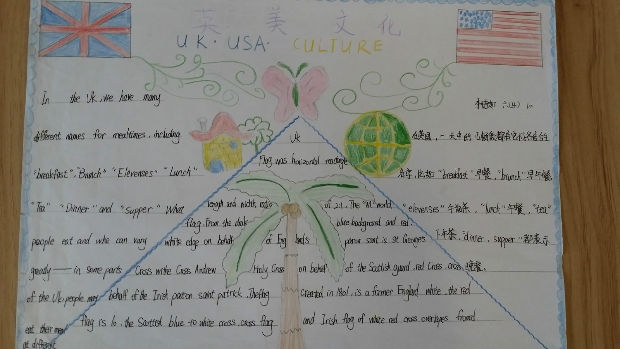 英 美 文 化
UK·USA· CULTURE
In the Uk, we have many
different names for mealtimes, including
"breakfast", "Brunch" "Elevenses" "Lunch"
"Tea" "Dinner" and "Supper". What
people eat and who can vary
greatly — in some parts
of the Uk, people may
eat their
at different
Uk
Flag was horizontal
length and width ratio of 2:1. The "M" world
flag. From the dark blue background and red
white edge on behalf of England's patron saint is st Georges
Cross white Cross Andrew Holy Cross on behalf of the Scottish guard, red Cross cross
behalf of the Irish patron saint patrick. The flag created in 1801, is a former England white the red
flag is 10, the Scottish blue to white cross, cross flag and Irish flag of white red cross overlaps
在英国，一天中的
名字，比如 "breakfast" 早餐，"brunch" 早午餐
"elevenses" 午前茶，"lunch" 午餐，"tea"
下午茶，dinner，supper
晚餐。